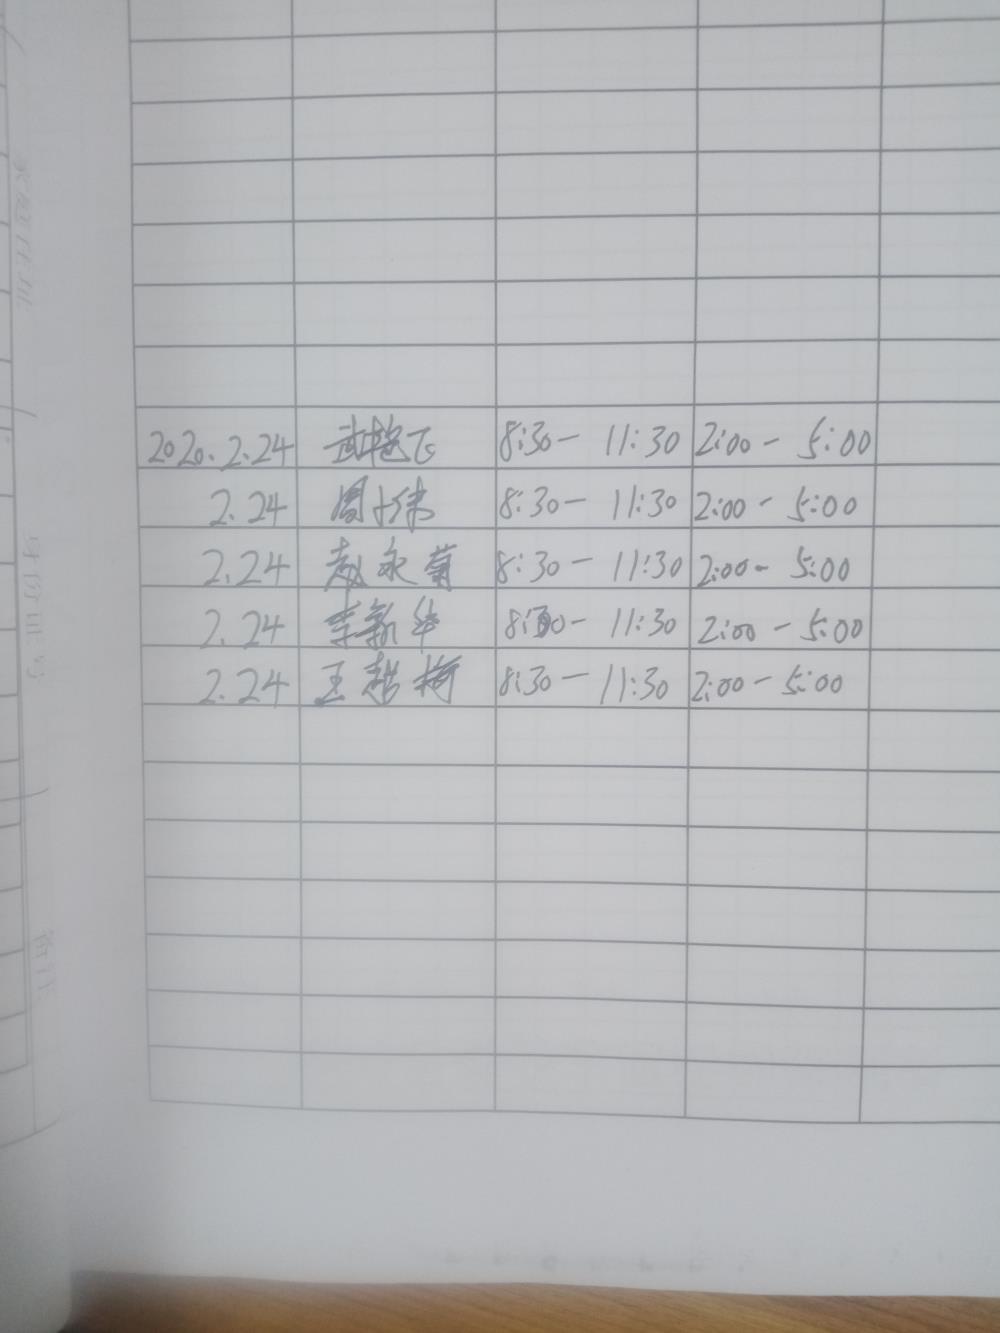 2020.2.24 武艳飞 8:30- 11:30 2:00- 5:00
2.24 周 8:30- 11:30 2:00- 5:00
2.24 赵永菊 8:30- 11:30 2:00- 5:00
2.24 李新华 8:30- 11:30 2:00- 5:00
2.24 王 梅 8:30- 11:30 2:00- 5:00